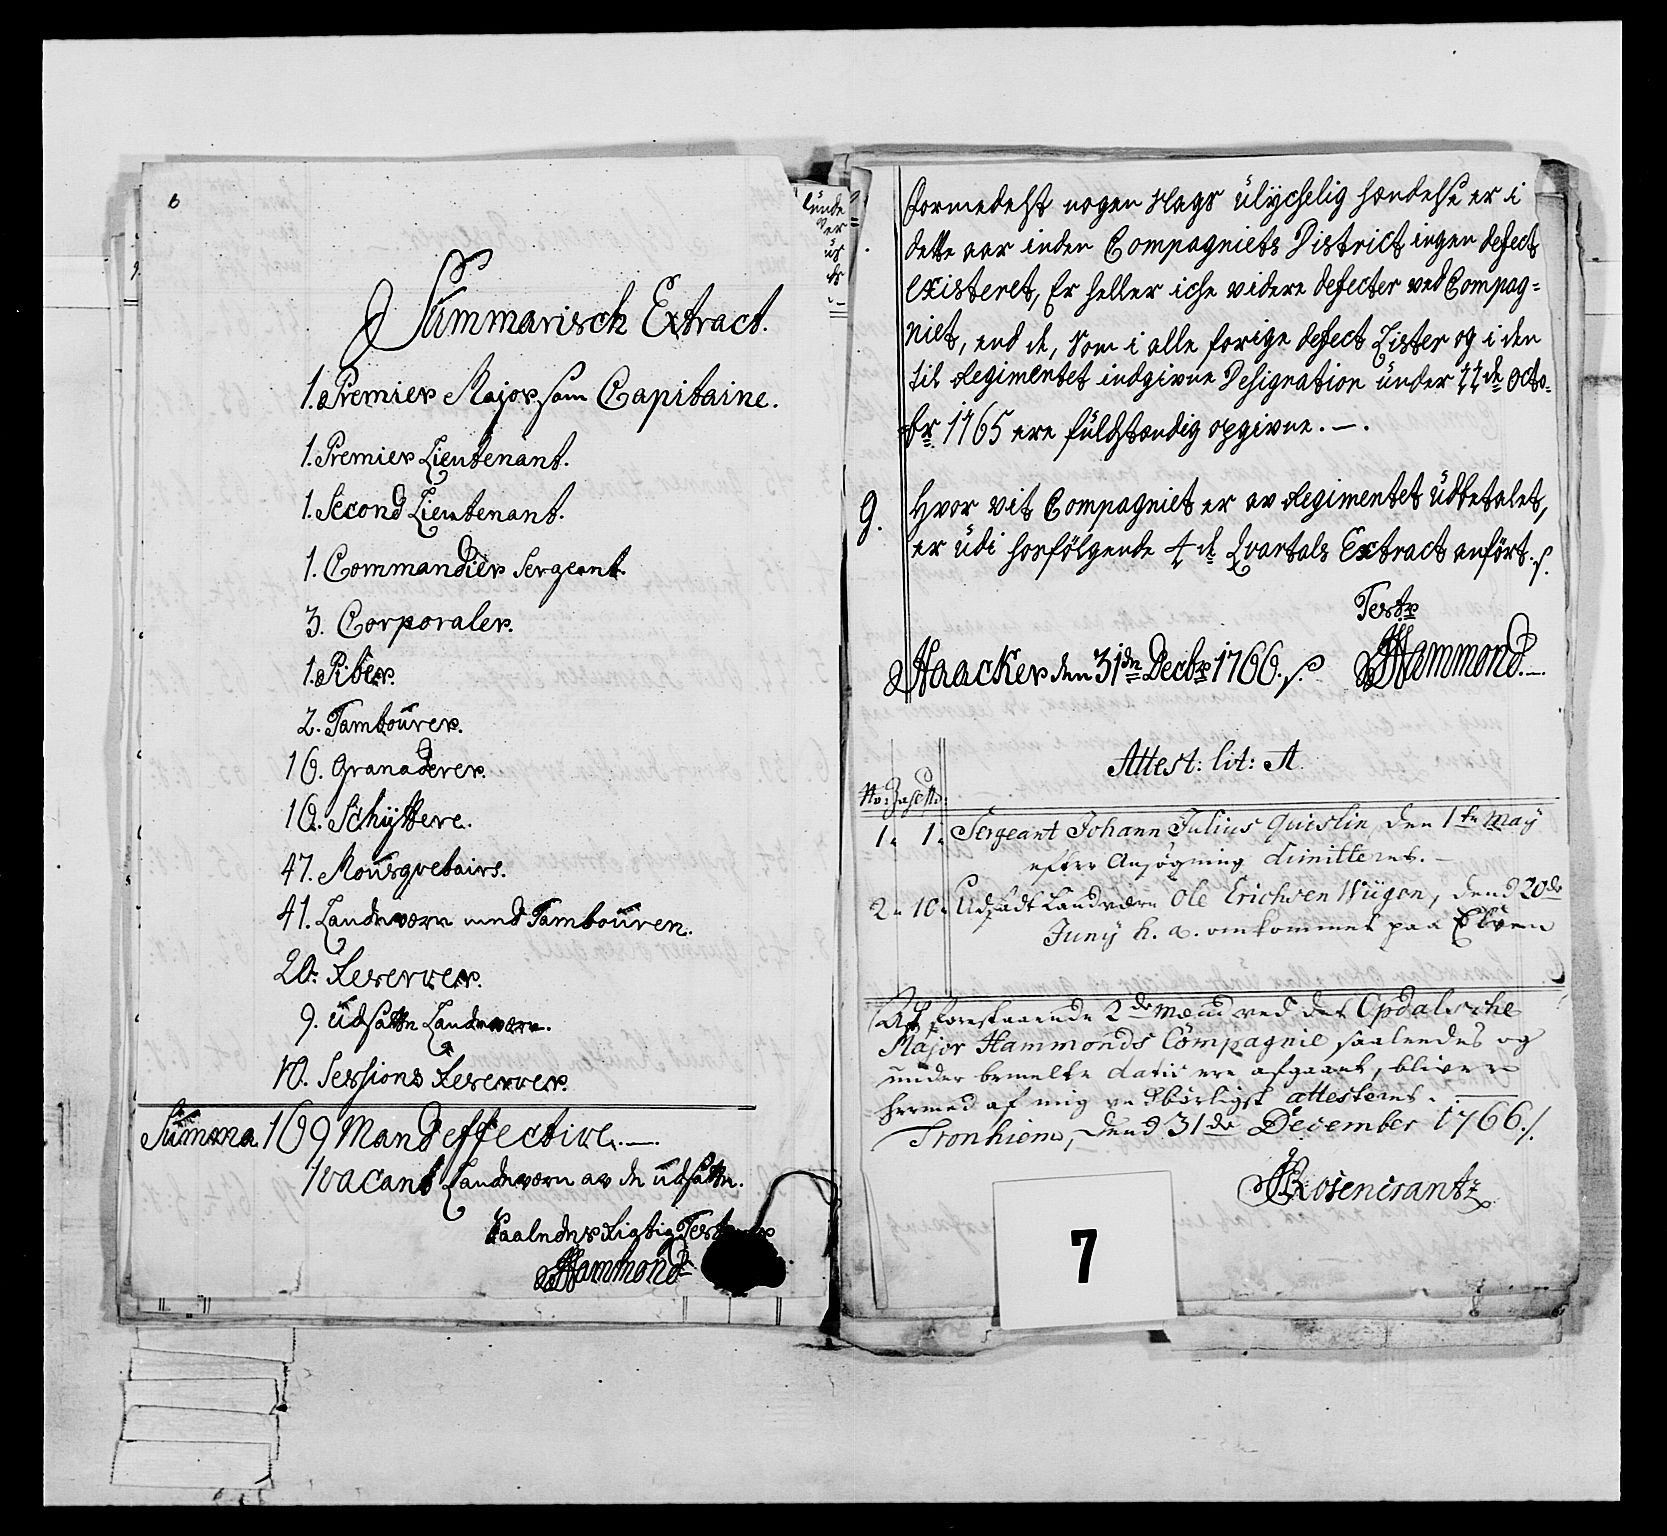 Summarisch Extract.
1. Premier Major som Capitaine.
1. Premier Lieutenant.
1. Second Lieutenant.
1. Commandier Sergeant.
3. Corporaler.
1. Piber.
2. Tambourer.
16. Granaderer.
16. Schyttere.
47. Mousqvetairs.
41. Landeværn med Tambouren.
20. Reserver.
9. udsatte Landeværn.
10. Sessions Reserver.
Summa 169 Mand effective.
1 vacant Landeværn av de udsatte.
Saaledes Rigtig Testerer
Hammond
formedelst nogen slags ulychelig hændelse er i
dette aar inden Compagniets District ingen defect
existeret, Er heller iche videre defecter ved Compag=
niet, end de, som i alle forige defect Lister og i den
til Regimentet indgivne Designation under 11de Octo=
br. 1765 ere fuldstændig opgivne.
9. Hvor vit Compagniet er av Regimentet udbetalet,
er udi hosfölgende 4de Qvartals Extract anfört.
Test
Haacker den 31de Decbr 1766.
Hammond.
Attest: lit: A.
No:
1. 1. Sergeant Johann Julius Quislin, den 1te May
efter Ansøgning dimitteret.
2. 10. Udsadt Landværn Ole Erichsen Wügen, dend 20de
Juny h. a. omkommet paa Elven
At forestaaende 2de Mænd ved det Opdalsche
Major Hammonds Compagnie saaledes og
under bemelte datis ere afgaaet, bliver
hermed af mig vedbörligst attesteret.
Tronhiem, dend 31de December 1766.
Rosencrantz
7